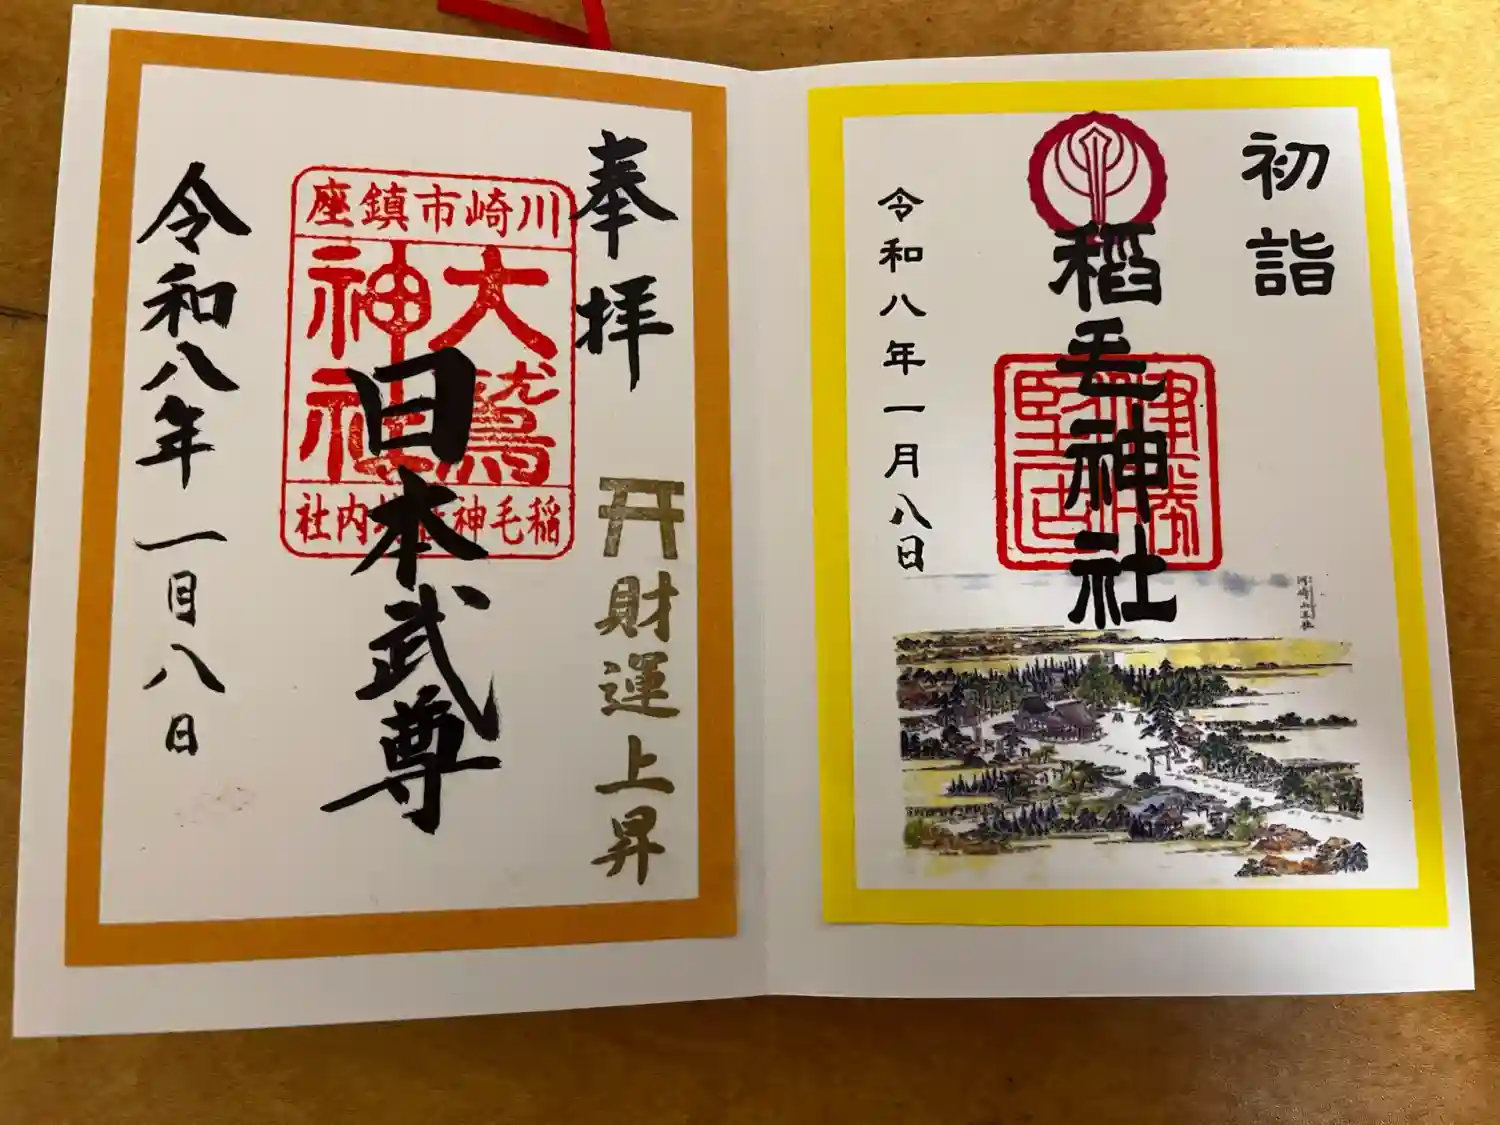 初詣
稲毛神社
令和八年一月八日
河崎山王社
奉拝
財運上昇
川崎市鎮座
大鷲神社
稲毛神社境内社
日本武尊
令和八年一月八日